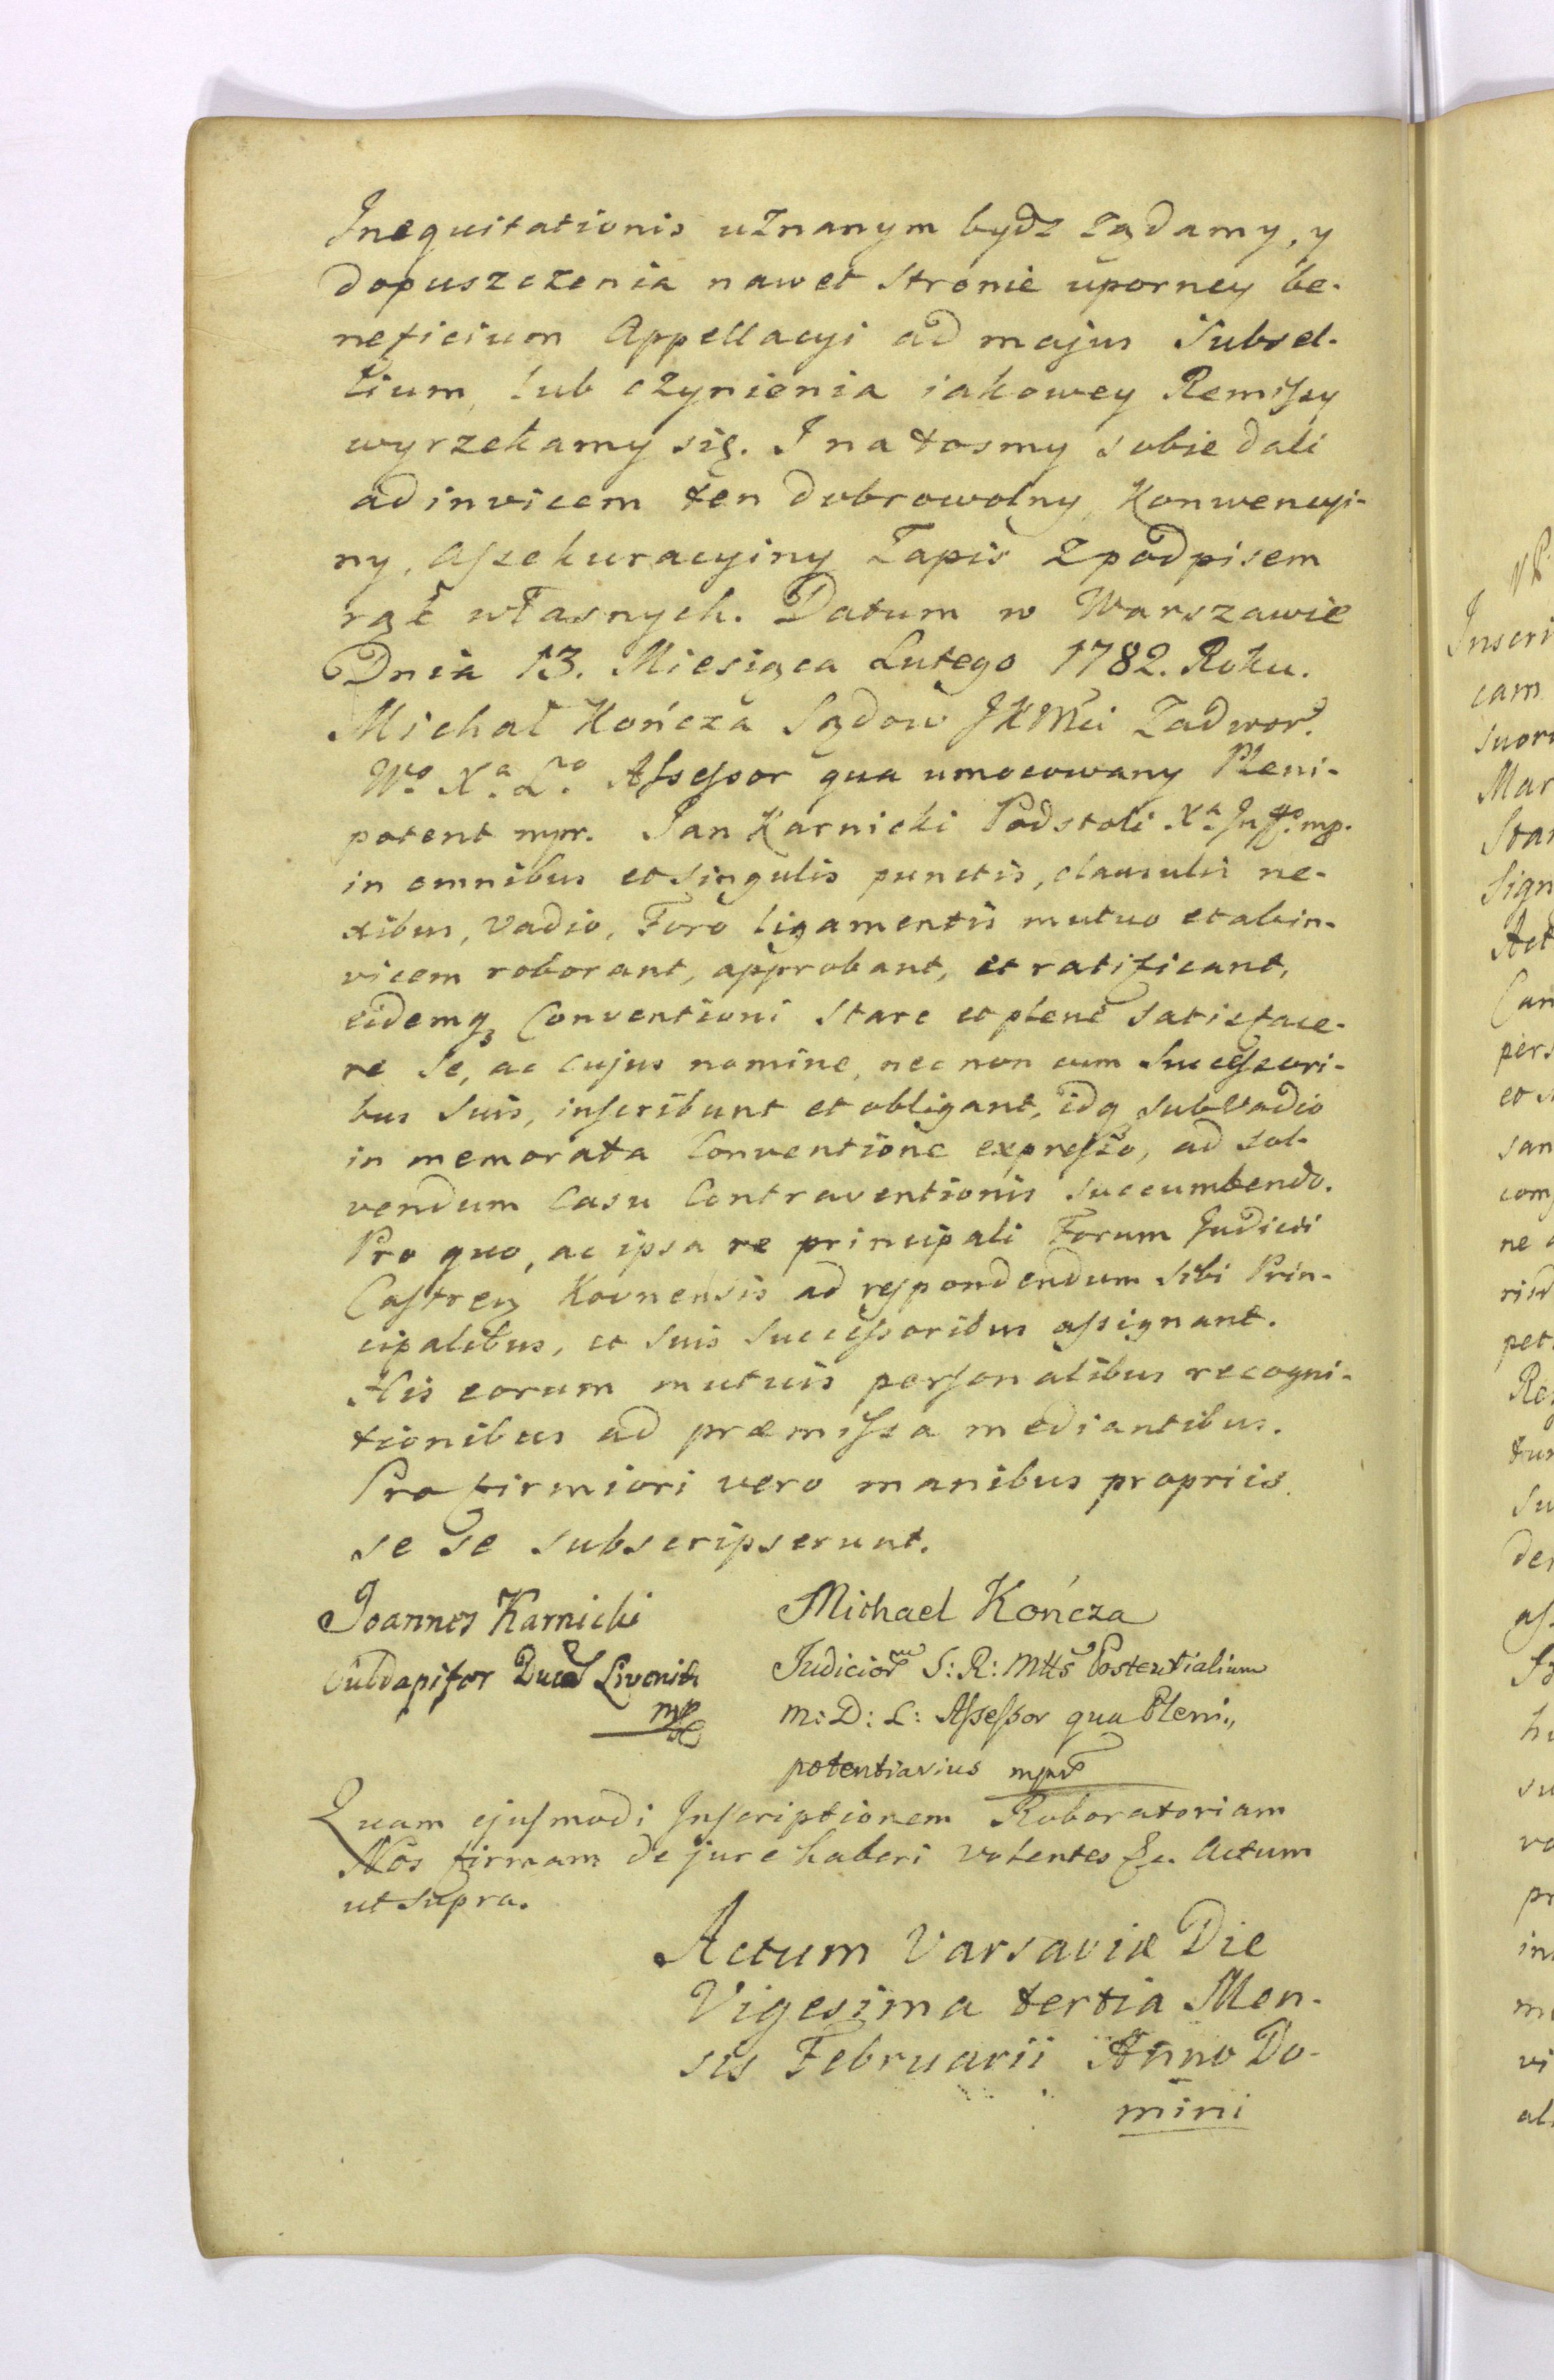 Inequitationis uznanym bydz żądamy, y
dopuszczenia nawet stronie uporney be-
neficium Appellacyi ad majus Subsel-
lium, lub czynienia iakowey Remissy
wyrzekamy się. I na tosmy sobie dali
ad invicem ten dobrowolny, Konwencyi-
ny, Assekuracyiny Zapis z podpisem
rąk własnych. Datum w Warszawie
Dnia 13. Miesiąca Lutego 1782. Roku.
Michał Kończa Sądow JKMci Zadwor.
Wo. Xa. Lo. Assessor qua umocowany Pleni-
potent mpr. Jan Karnicki Podstoli Xa. Inffo. mp.
in omnibus et singulis punctis, clausulis ne-
xibus, vadio, Foro ligamentis mutuo et abin-
vicem roborant, approbant, et ratificant,
eidemq3 Conventioni stare et plene satisface-
re se, ac cujus nomine, nec non cum Successori-
bus suis, inscribunt et obligant, idq3 sub Vadio
in memorata Conventione expresso, ad sol-
vendum Casu Contraventionis succumbendo.
Pro quo, ac ipsa re principali Forum Judicii
Castren Kovnensis ad respondendum sibi Prin-
cipalibus, et suis Successoribus assignant.
His eorum mutuis personalibus recogni-
tionibus ad præmissa mediantibus.
Pro firmiori vero manibus propriis
se se subscripserunt.
Joannes Karnicki
Subdapifer Ducat Livoniæ
mp
Michael Kończa
Judicior S: R: Mttis Postcurialium
M: D: L: Assessor qua Pleni„
potentiarius mpr
Quam ejusmodi Inscriptionem Roboratoriam
Nos firmam de jure haberi volentes &c. Actum
ut supra.
Actum Varsaviæ Die
Vigesima tertia Men-
sis Februarii Anno Do-
mini
Inscri
cam
suor
Mar
Star
Sign
Act
Can
pers
et s
san
com
ne
risd
pet
Re
tun
su
der
as
h
su
ro
pr
in
m
vi
al